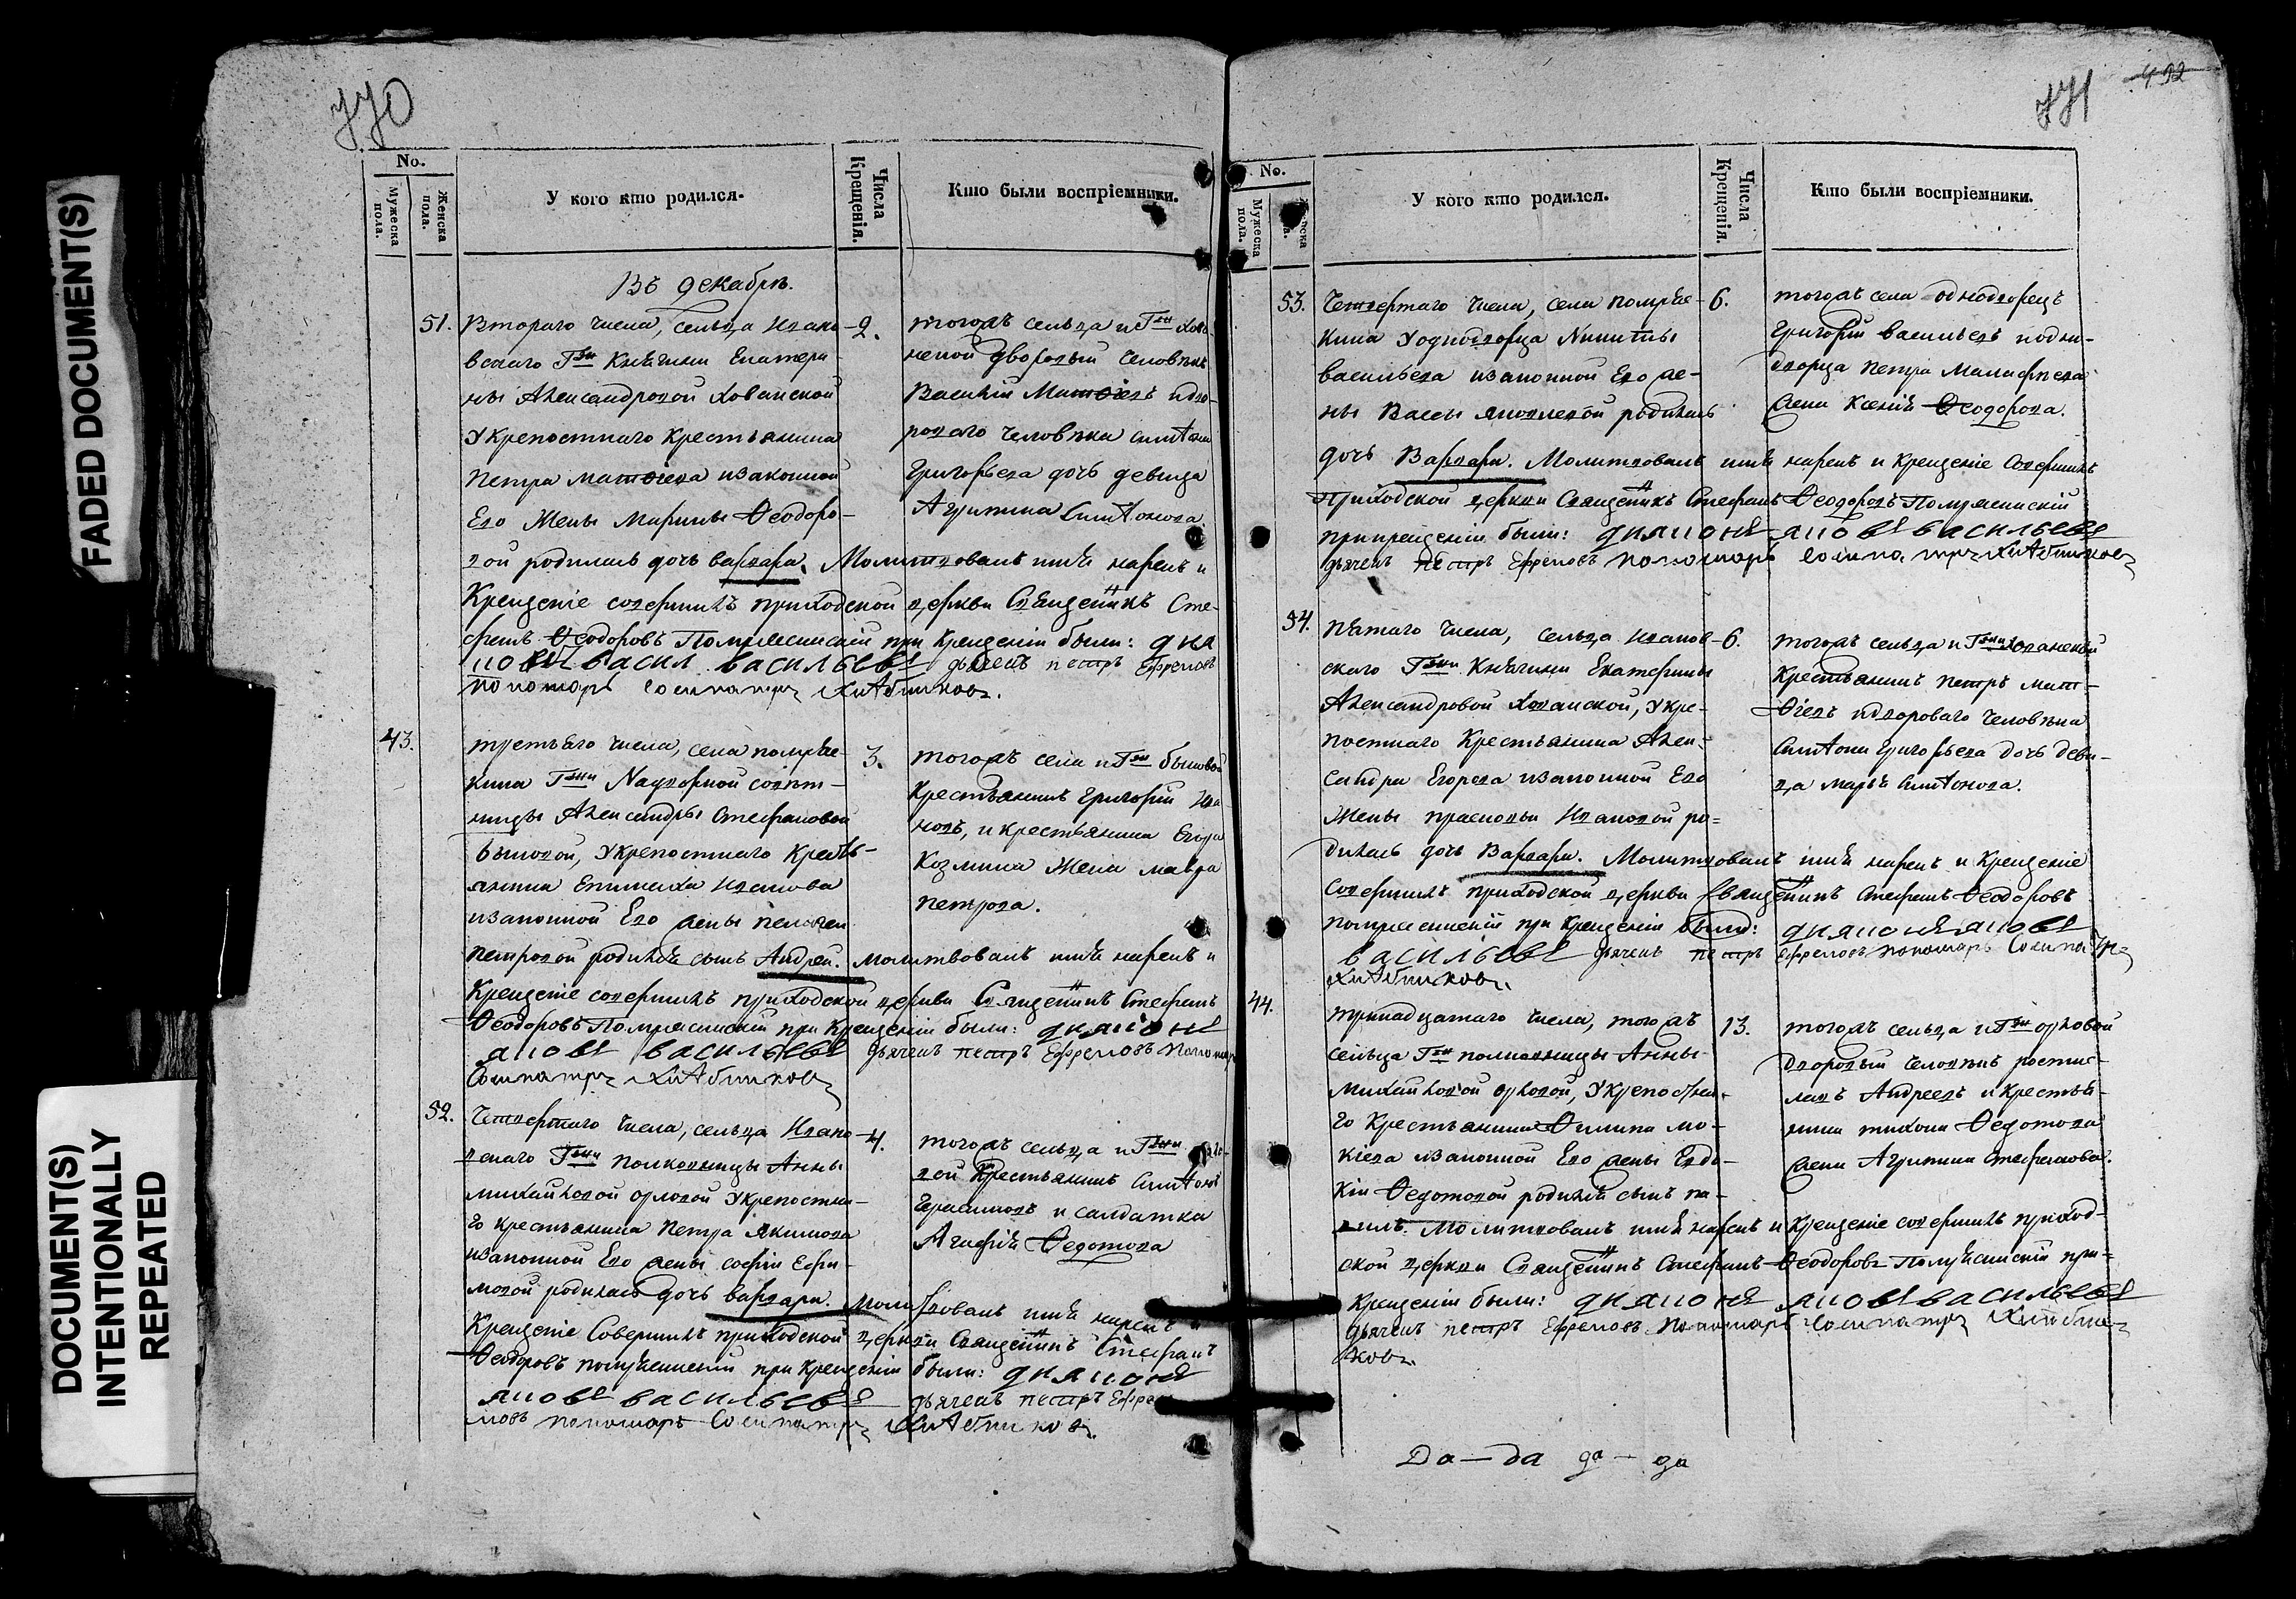 770
No.
Мужеска пола.
Женска пола.
У кого кто родился.
Числа Крещенія.
Кто были воспріемники.
Въ декабрѣ.
51.
Втораго числа, сельца Ивано-
вскаго Гжи Княгини Екатери-
ны Александровой Хованской
Укрепостнаго Крестьянина
Петра Матѳіева изаконной
Его Жены Марины Ѳеодоро-
вой родилась дочь Варвара. Молитвовалъ имя нарекъ и
Крещеніе совершилъ приходской церкви Священникъ Сте-
фанъ Ѳеодоровъ при Крещеніи были:
васильевъ дьячекъ петръ Ефремовъ
пономарь
2.
тогожъ сельца и Гжи Хова
нской дворовый человѣкъ
Василій Матѳіевъ идво-
роваго человѣка Антона
Григорьева дочь девица
Агрипина Антонова.
43.
третьяго числа, села
Гжи Надворной совѣт-
ницы Александры Стефановой
Быковой, Укрепостнаго Кресть-
янина Епимаха Иванова
изаконной Его жены пелагеи
петровой родился сынъ Андрей. Молитвовалъ имя нарекъ и
Крещеніе совершилъ приходской церкви Священникъ Стефанъ
Ѳеодоровъ при Крещеніи были: диаконъ
яковъ васильевъ дьячекъ петръ Ефремовъ пономарь
3.
тогожъ села и Гжи Быковой
Крестьянинъ Григорій Ива
новъ, и крестьянина Егора
Козмина Жена мавра
петрова.
52.
Четвертаго числа, сельца Ивано-
вскаго Гжи полковницы Анны
михайловой орловой Укрепостна-
го крестьянина Петра Якимова
изаконной Его жены софіи Ефи-
мовой родилась дочь варвара. Молитвовалъ имя нарекъ и
Крещеніе Совершилъ приходской церкви Священникъ Стефанъ
Ѳеодоровъ при Крещеніи были: диаконъ
яковъ васильевъ дьячекъ петръ Ефре
мовъ пономарь
4.
тогожъ сельца и Гжи орло-
вой Крестьянинъ Антонъ
Герасимовъ и салдатка
Агафія Ѳедотова
771
492
No.
Мужеска пола.
У кого кто родился.
Числа Крещенія.
Кто были воспріемники.
53.
Четвертаго числа, села
Уоднодворца Никиты
васильева изаконной Его же-
ны Вассы яковлевой родилась
дочь Варвара. Молитвовалъ имя нарекъ и Крещеніе Совершилъ
приходской церкви Священникъ Стефанъ Ѳеодоровъ
прикрещеніи были: диаконъ яковъ васильевъ
дьячекъ петръ Ефремовъ пономарь
6.
тогожъ села однодворецъ
Григорій васильевъ иодно-
дворца петра
жена Ксенія Ѳеодорова.
54.
пятаго числа, сельца Иванов-
скаго Гжи Княгини Екатерины
Александровой Хованской, Укре-
постнаго Крестьянина Алек-
сандра Егорова изаконной Его
Жены прасковьи Ивановой ро-
дилась дочь Варвара. Молитвовалъ имя нарекъ и Крещеніе
Совершилъ приходской церкви Священникъ Стефанъ Ѳеодоровъ
при Крещеніи были: диаконъ яковъ
васильевъ дьячекъ петръ Ефремовъ пономарь
6.
тогожъ сельца и Гжи Хованской
Крестьянинъ петръ мат-
ѳіевъ идвороваго человѣка
Антона Григорьева дочь деви-
ца марья Антонова.
44.
тринадцатаго числа, тогожъ
сельца Гжи полковницы Анны
Михайловой орловой, Укрепостна-
го Крестьянина Филипа мо-
кіева изаконной Его жены Евдо-
кіи Ѳедотовой родился сынъ
Молитвовалъ имя нарекъ и Крещеніе совершилъ приход-
ской церкви Священникъ Стефанъ Ѳеодоровъ при
Крещеніи были: диаконъ яковъ васильевъ
дьячекъ петръ Ефремовъ пономарь
13.
тогожъ сельца и Гжи орловой
дворовый человѣкъ
Андреевъ и крестья-
нина тихона Ѳедотова
жена Агрипина Стефанова.
Да — да да — да
FADED DOCUMENT(S)
DOCUMENT(S)
INTENTIONALLY
REPEATED